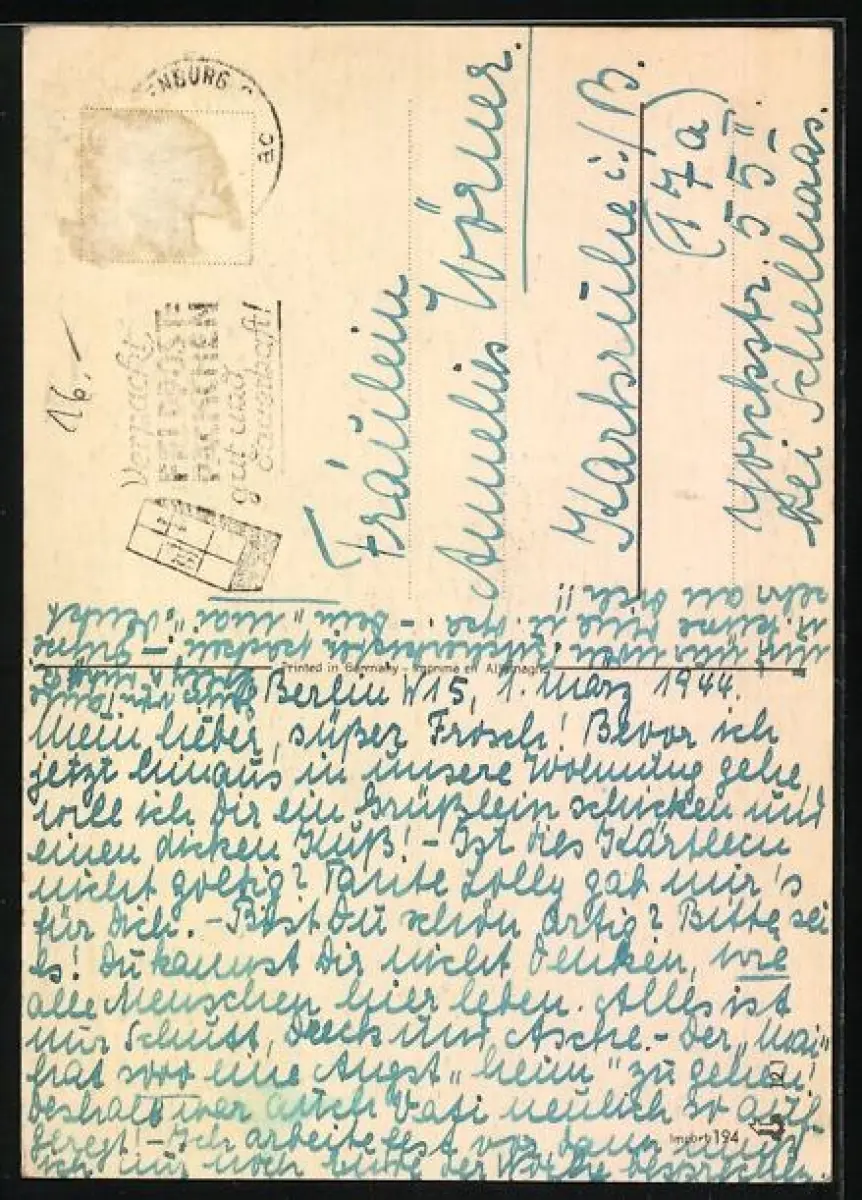 ENBURG
ac
16.-
Verpackt
FELDPOST-
PÄCKCHEN
gut und
dauerhaft!
Fräulein
Annelies Wörner.
Karlsruhe i./B.
(17a)
Yorckstr. 55 II.
bei Schellhaas.
Printed in Germany - Imprimé en Allemagne
Berlin W15, 1. März 1944.
Mein lieber, süßer Frosch! Bevor ich
jetzt hinaus in unsere Wohnung gehe,
will ich Dir ein Grüßlein schicken und
einen dicken Kuß! - Ist dies Kärtlein
nicht goltig? Tante Lolly gab mir's
für Dich. - Bist Du schön artig? Bitte sei
es! Du kannst Dir nicht denken, wie
alle Menschen hier leben. Alles ist
nur Schutt, Dreck und Asche. - Der "Mai"
hat eine Angst "heim" zu gehen!
Deshalb war auch Vati neulich so auf-
geregt! - Ich arbeite fest
ich nur noch Ende der Woche besprechen.
Import 194